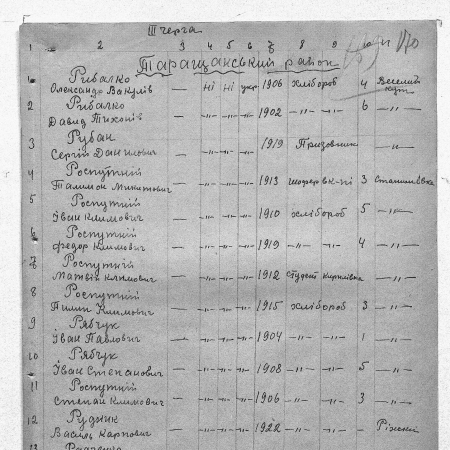 III черга
1 2 3 4 5 6 7 8 9 10 11
Таращанський район
1 Рибалко
Олександр Вакулів — ні ні укр. 1906 хлібороб 4 Веселий
кут
2 Рибалко
Давид Тихонів — -"- -"- -"- 1902 -"- -"- 6 -"-
3 Рубан
Сергій Данилович — -"- -"- -"- 1919 Призовник -"-
4 Роспутній
Палимон Микитович — -"- -"- -"- 1913 3 Станишівка
5 Роспутній
Іван Климович — -"- -"- -"- 1910 хлібороб 5 -"-
6 Роспутній
Федор Климович — -"- -"- -"- 1919 -"- -"- 4 -"-
7 Роспутній
Матвій Климович — -"- -"- -"- 1912 студент -"-
8 Роспутній
Пилип Климович — -"- -"- -"- 1915 хлібороб 3 -"-
9 Рябчук
Іван Павлович — -"- -"- -"- 1904 -"- -"- 1 -"-
10 Рябчук
Іван Степанович — -"- -"- -"- 1908 -"- -"- 5 -"-
11 Роспутній
Степан Климович — -"- -"- -"- 1906 -"- -"- 3 -"-
12 Рудник
Василь Карпович — -"- -"- -"- 1922 -"- -"- -
13